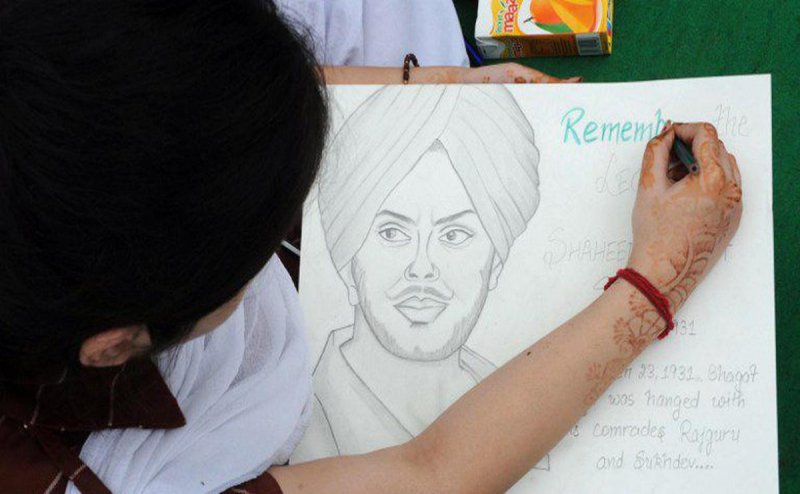 maa
Rememb the
SHAHEED
931
23, 1931, Bhagat
was hanged with
comrades Rajguru
and Sukhdev....